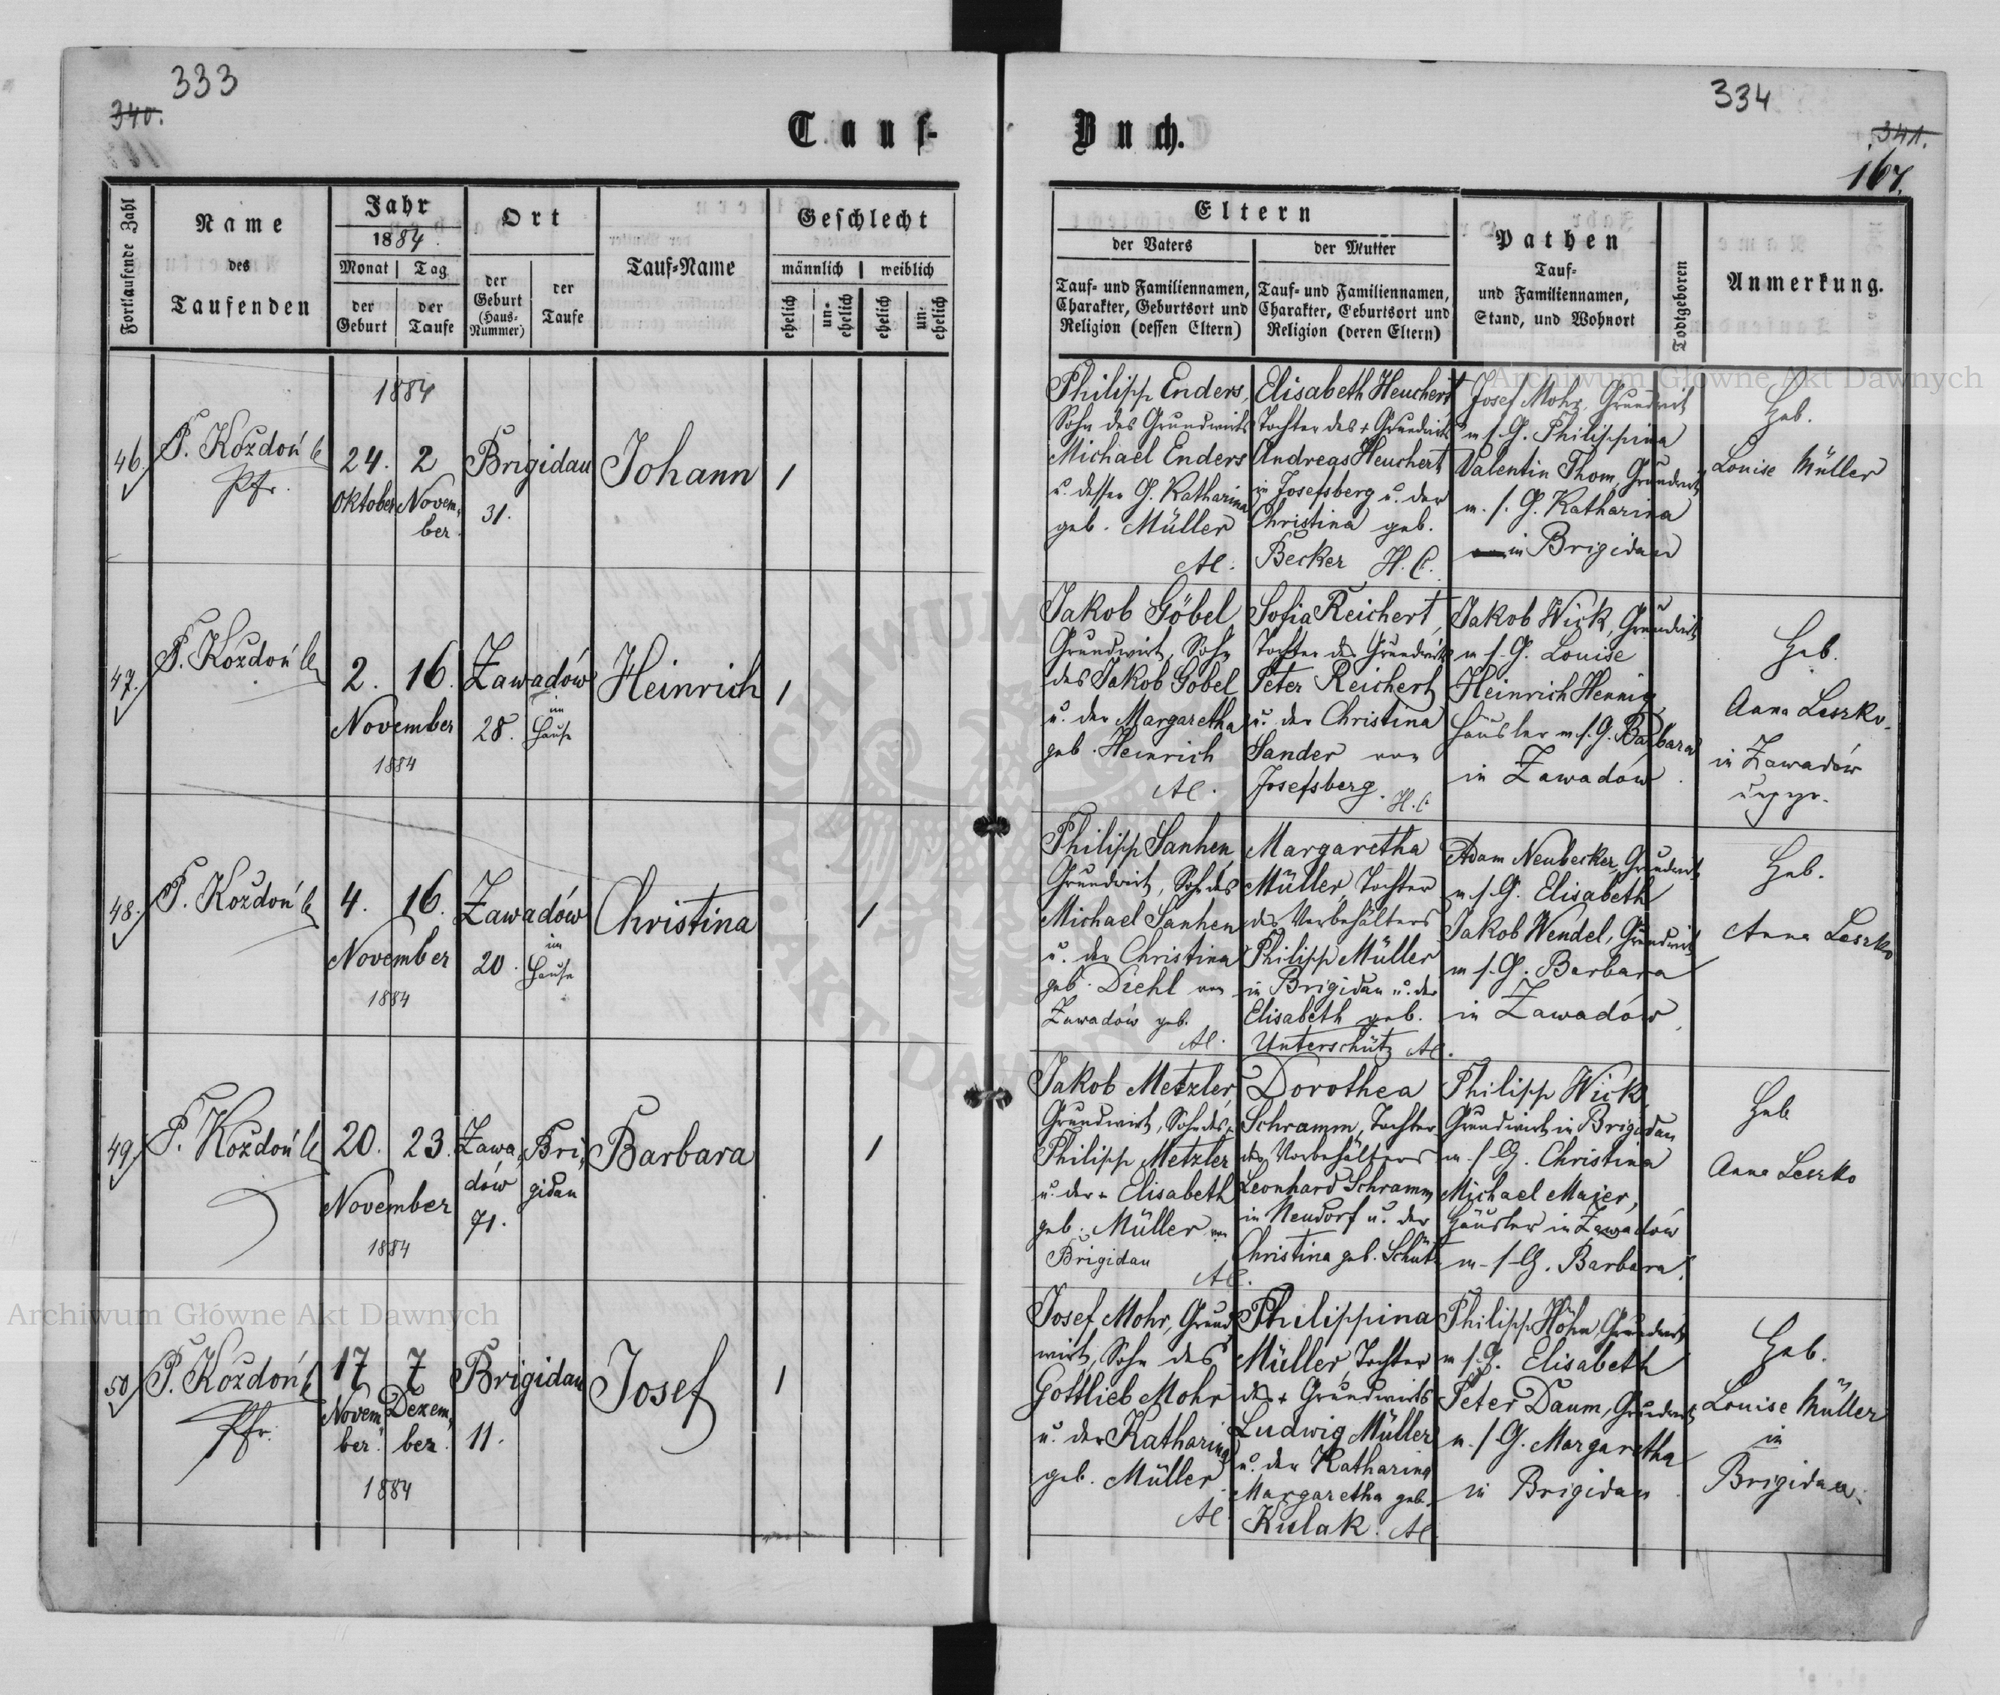 333
340.
Tauf-
Fortlaufende Zahl
Name
des
Taufenden
Jahr
1884.
Monat
Tag
der
Geburt
der
Taufe
Ort
der
Geburt
(Haus-
Nummer)
der
Taufe
Tauf-Name
Geschlecht
männlich
weiblich
ehelich
un-
ehelich
ehelich
un-
ehelich
46.
P. Kozdoń
Pfr.
1884
24.
Oktober
2
Novem-
ber
Brigidau
31.
Johann
1
47.
P. Kozdoń
2.
16.
November
1884
Zawadów
28.
im
Hause
Heinrich
1
48.
P. Kozdoń
4.
16.
November
1884
Zawadów
20.
im
Hause
Christina
1
49
P. Kozdoń
20.
23.
November
1884
Zawa-
dów
71.
Bri-
gidau
Barbara
1
50
P. Kozdoń
Pfr.
17
Novem-
ber.
7
Dezem-
ber
1884
Brigidau
11.
Josef
1
334
341.
167.
Buch.
Eltern
der Vaters
der Mutter
Tauf- und Familiennamen,
Charakter, Geburtsort und
Religion (dessen Eltern)
Tauf- und Familiennamen,
Charakter, Geburtsort und
Religion (deren Eltern)
Pathen
Tauf-
und Familiennamen,
Stand, und Wohnort
Todtgeboren
Anmerkung.
Philipp Enders,
Sohn des Grundwirts
Michael Enders
u. dessen G. Katharina
geb. Müller
AC.
Elisabeth Heuchert
Tochter des + Grundwirts
Andreas Heuchert
in Josefsberg u. der
Christina geb.
Becker H.C.
Josef Mohr, Grundwirt
m s. G. Philippina
Valentin Thom, Grundwirt
m. s. G. Katharina
in Brigidau
Heb.
Louise Müller
Jakob Göbel,
Grundwirt, Sohn
des Jakob Göbel
u. der Margaretha
geb. Heinrich
AC.
Sofia Reichert,
Tochter des Grundwirts
Peter Reichert
u. der Christina
Sander von
Josefsberg. H.C.
Jakob Wick, Grundwirt
m s. G. Louise
Heinrich Hennig,
Häusler m s. G. Barbara
in Zawadów.
Heb.
Anna Leszko.
in Zawadów
Philipp Sanhen,
Grundwirt, Sohn des
Michael Sanhen
u. der Christina
geb. Diehl von
Zawadów geb.
AC.
Margaretha
Müller, Tochter
des Vorbehälters
Philipp Müller
in Brigidau u. der
Elisabeth geb.
Unterschütz AC.
Adam Neubecker, Grundwirt
m. s. G. Elisabeth
Jakob Wendel, Grundwirt
m s. G. Barbara
in Zawadów,
Heb.
Anna Leszko
Jakob Metzler,
Grundwirt, Sohn des
Philipp Metzler
u. der + Elisabeth
geb. Müller von
Brigidau
AC.
Dorothea
Schramm, Tochter
des Vorbehälters
Leonhard Schramm
in Neudorf u. der
Christina geb. Schütz
Philipp Wick,
Grundwirt in Brigidau
m. s. G. Christina
Michael Majer,
Häusler in Zawadów
m. s. G. Barbara.
Heb
Anna Leszko
Josef Mohr, Grund-
wirt, Sohn des
Gottlieb Mohr
u. der Katharina
geb. Müller.
AC
Philippina
Müller, Tochter
des + Grundwirts
Ludwig Müller
u. der Katharina
Margaretha geb.
Kulak. AC
Philipp Höhn, Grundwirt
m s. G. Elisabeth
Peter Daum, Grundwirt
m. s. G. Margaretha
in Brigidau
Heb.
Louise Müller
in
Brigidau.
Archiwum Główne Akt Dawnych
Archiwum Główne Akt Dawnych
ARCHIWUM
AKT DAWNYCH